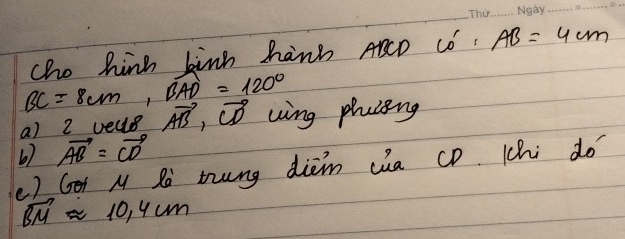 Thứ....... Ngày.......
Cho hình bình hành ABCD có: AB = 4 cm
BC = 8cm, \widehat{BAD} = 120°
a) 2 vectơ \overrightarrow{AB}, \overrightarrow{CD} cùng phương
b) \overrightarrow{AB} = \overrightarrow{CD}
c) Gọi M là trung điểm của CD. Khi đó
\overrightarrow{BM} ≈ 10,4 cm